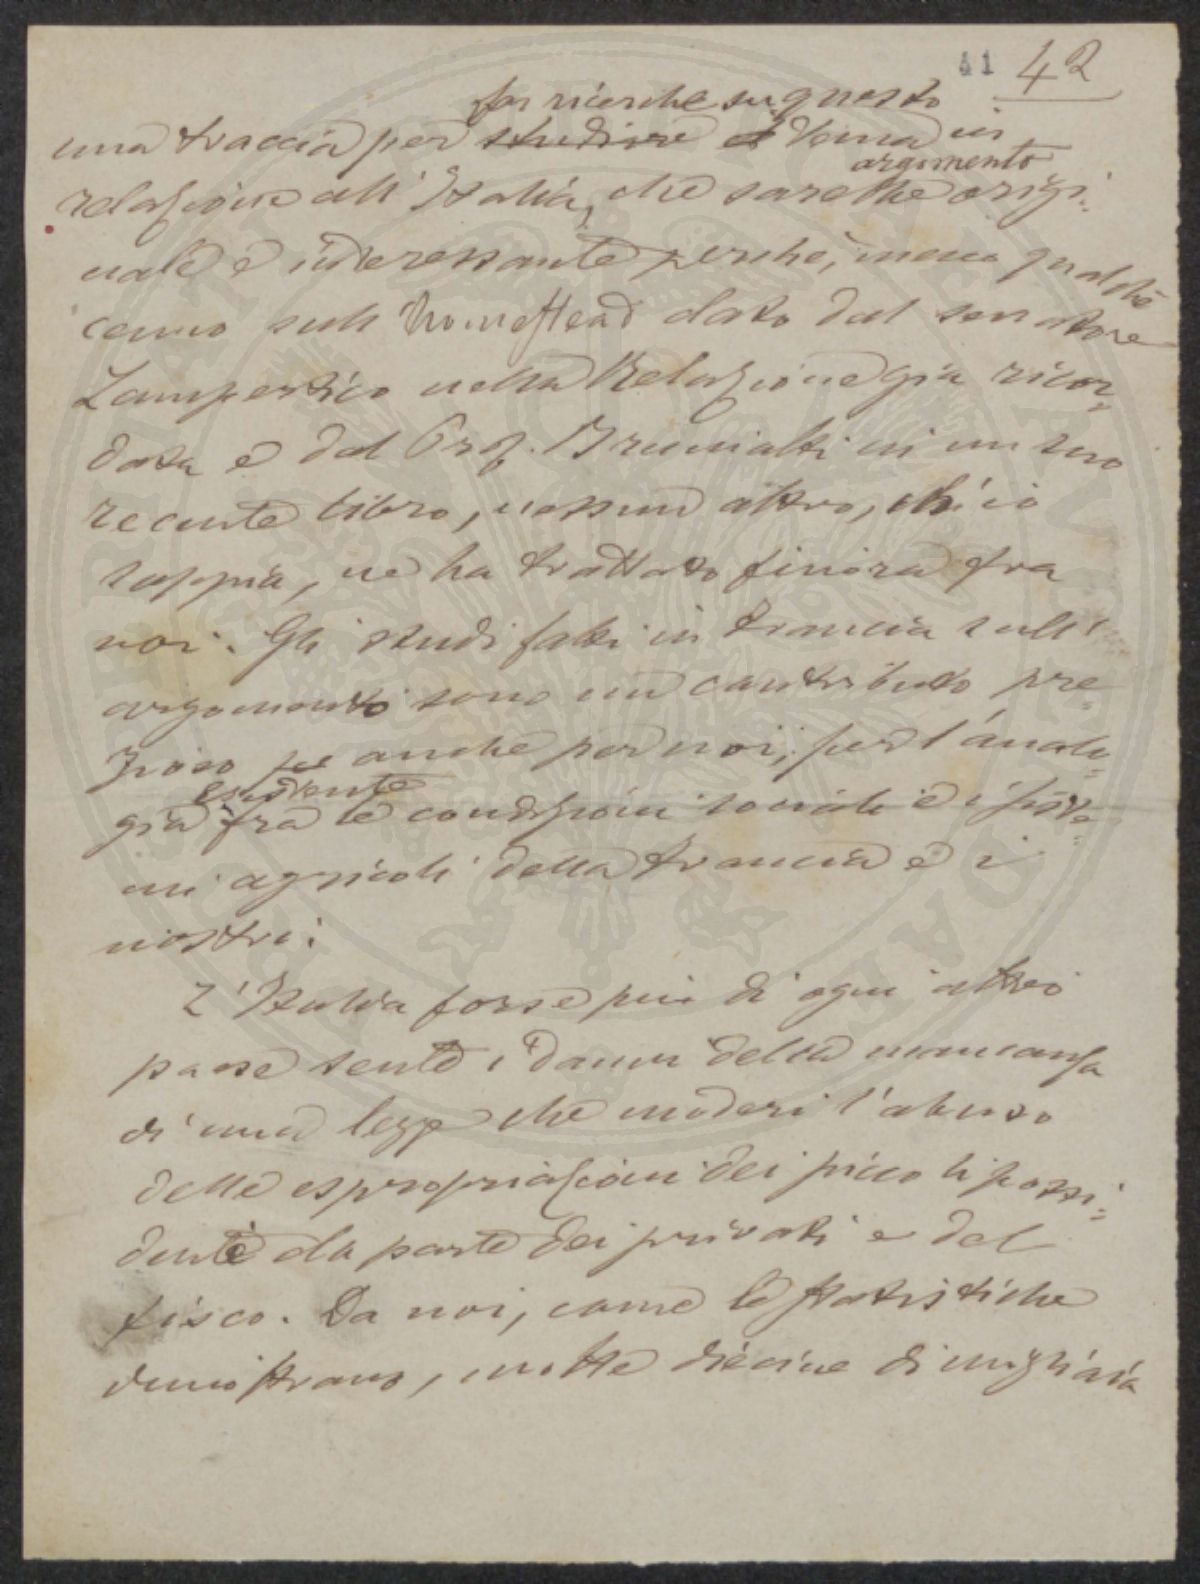 41 42
far ricerche su questo
una traccia per studiare il tema in
argomento
relazione all'Italia, che sarebbe origi=
nale e interessante perchè, meno qualche
cenno sull' homestead dato dal senatore
Lampertico nella Relazione già ricor=
data e dal Prof. Brunialti in un suo
recente libro, nessun altro, ch'io
sappia, ne ha trattato finora fra
noi. Gli studi fatti in Francia sull'
argomento sono un contributo pre=
zioso anche per noi, per l'analo=
esistente
gia fra le condizioni sociali e i siste=
mi agricoli della Francia e i
nostri.
L'Italia forse più di ogni altro
paese sente i danni della mancanza
di una legge che moderi l'abuso
delle espropriazioni dei piccoli possi=
denti da parte dei privati e del
fisco. Da noi, come le statistiche
dimostrano, molte diecine di migliaia